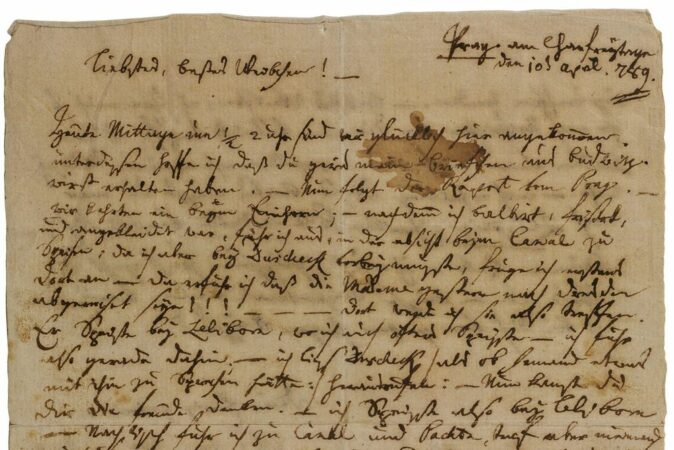 Prag am Charfreytage
den 10t April. 789.
Liebstes, bestes Weibchen! —
Heute Mittags um ½ 2 uhr sind wir glücklich hier angekommen.
unterdessen hoffe ich daß du gewis mein briefchen aus Budwitz
wirst erhalten haben. — Nun folgt der Rapport von Prag. —
wir kehrten ein beym Einhorn; — nachdem ich balbirt, frisirt,
und angekleidet war, fuhr ich aus, in der absicht beym Canal zu
Speisen; da ich aber bey Duscheck vorbey mußte, frug ich erstens
dort an — da erfuhr ich daß die Madame gestern nach Dresden
abgereiset seye!!! — dort werde ich sie also treffen.
Er Speiste bey Leliborn, wo ich auch öfters Speiste — ich fuhr
also gerade dahin. — ich ließ Duscheck /: als ob Jemand etwas
mit ihm zu Sprechen hätte :/ herausrufen: — Nun kannst du
Dir die freude denken. — ich Speiste also bey Leliborn
— Nach tisch fuhr ich zu Canal und Pachta, traf aber niemand